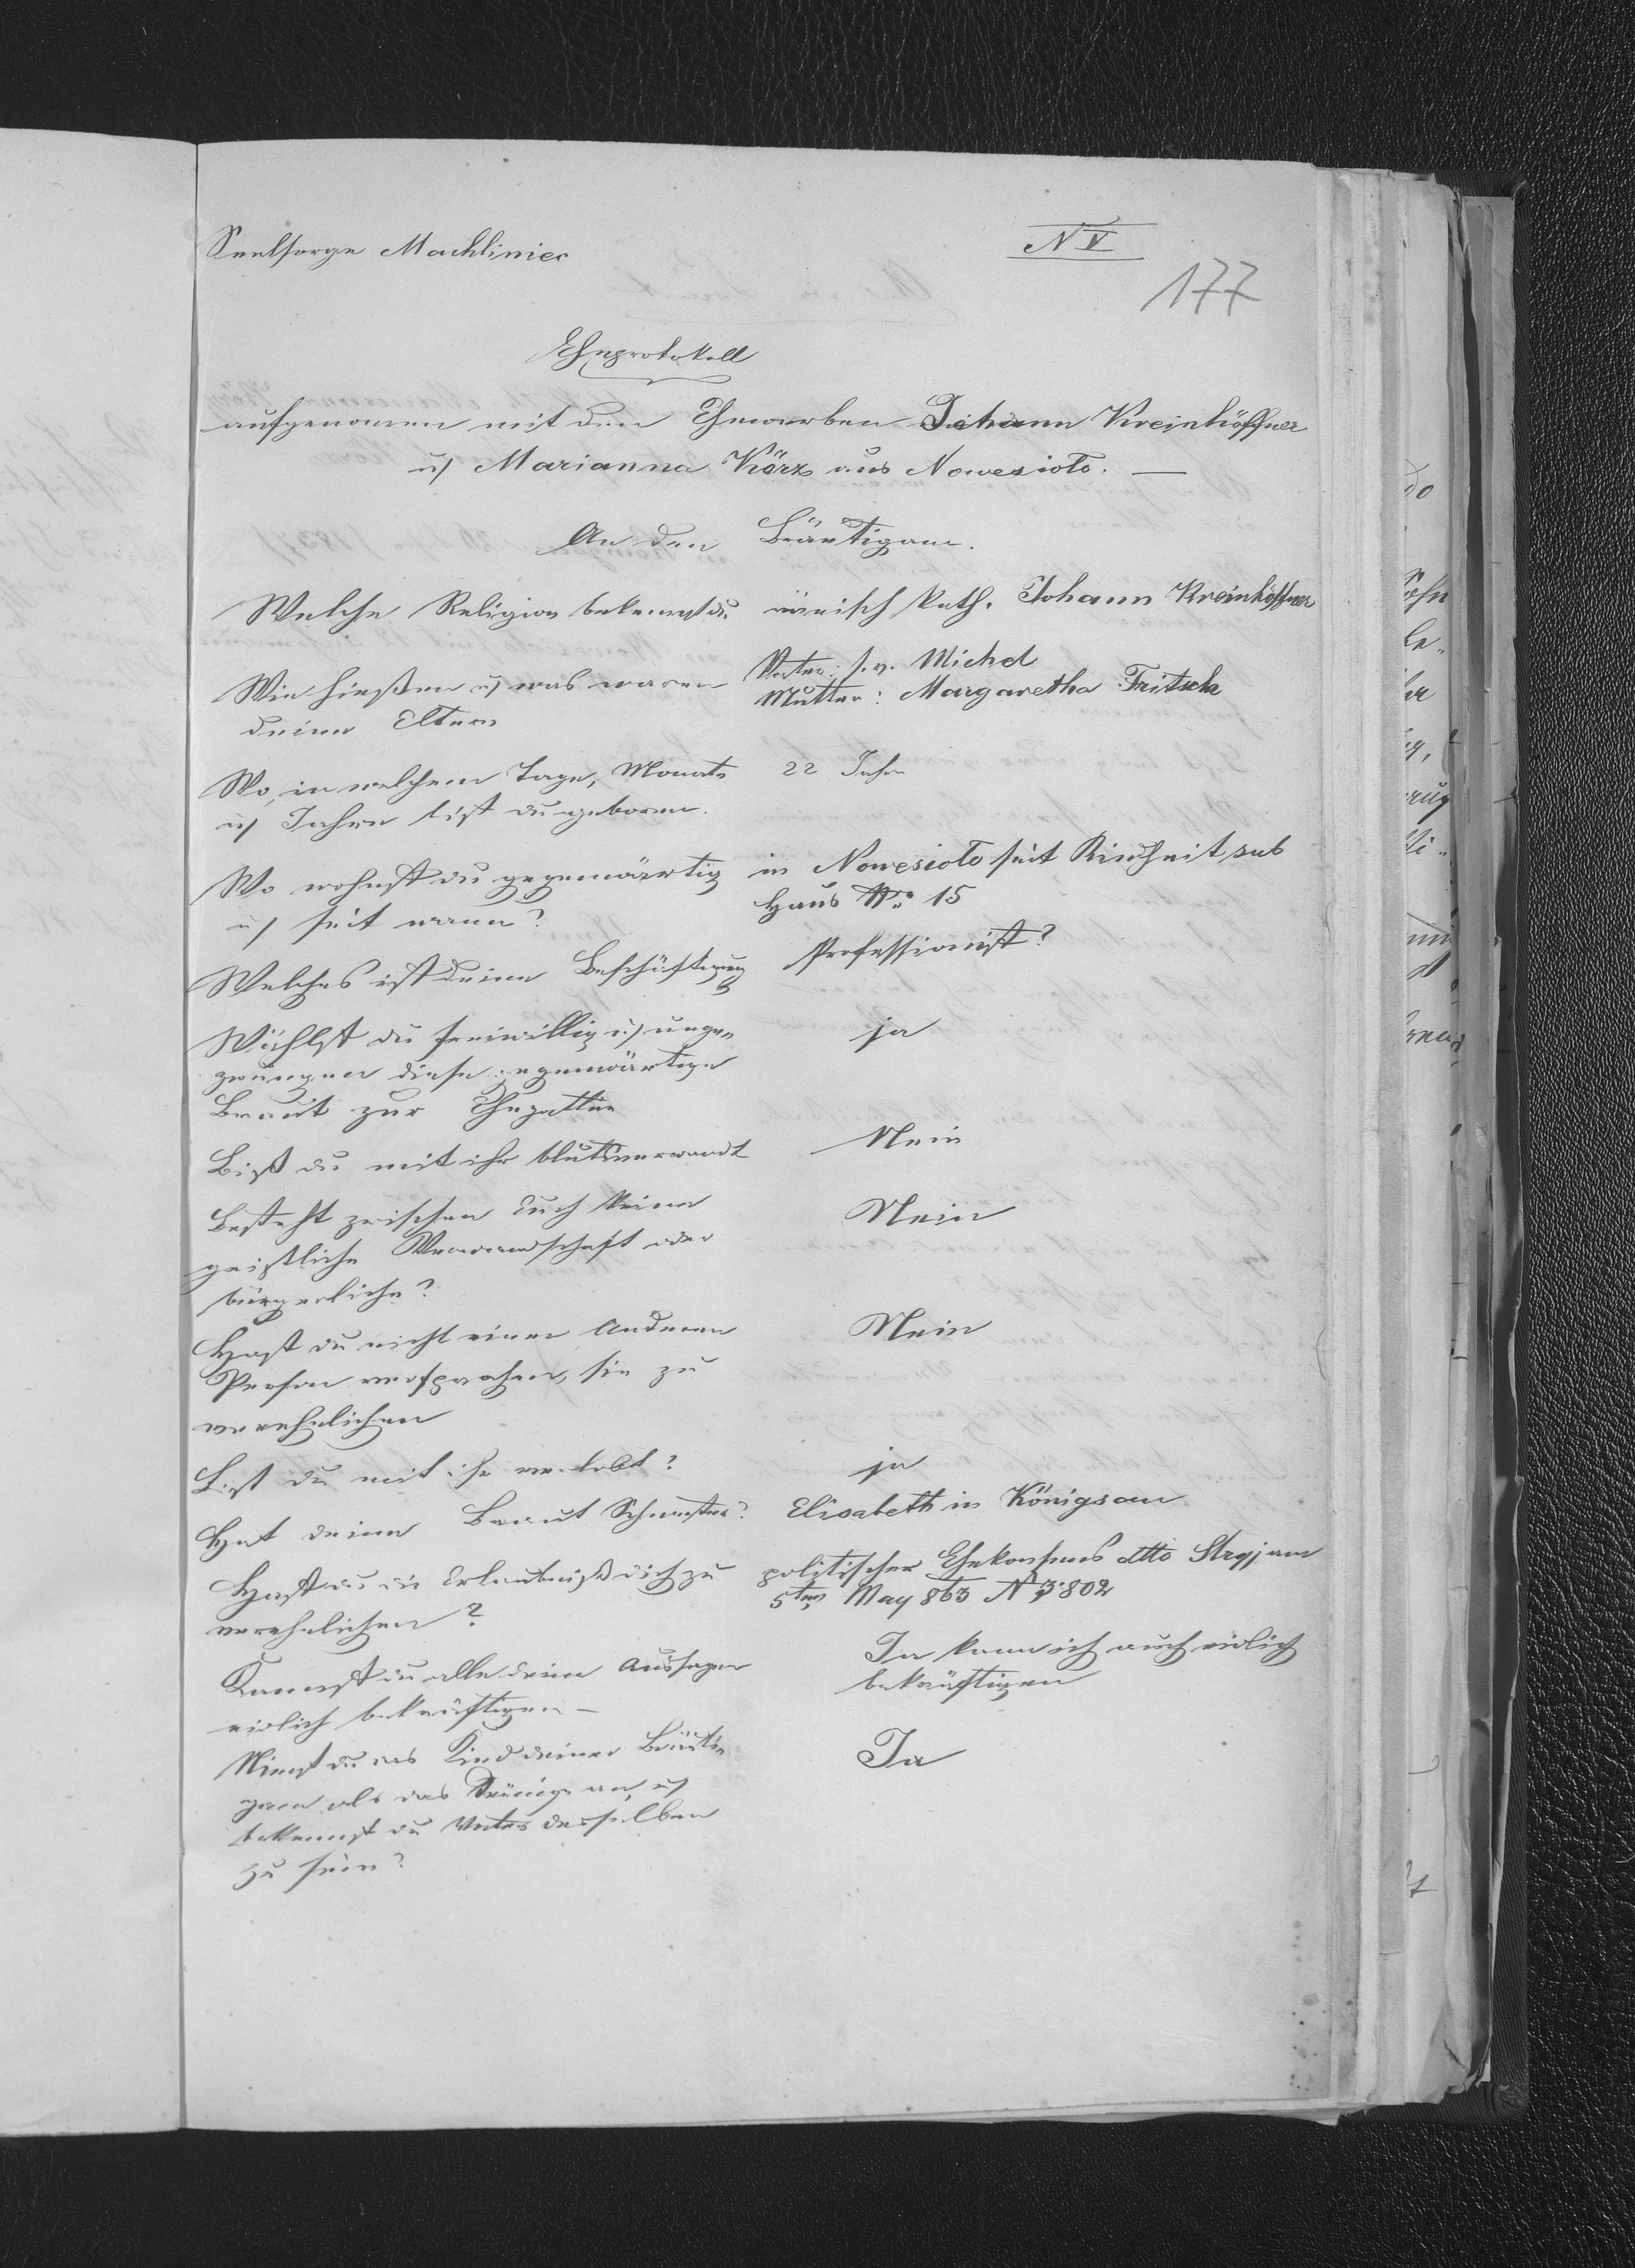 Seelsorge Machliniec
N V
177
Eheprotokoll
aufgenomen mit den Ehewerben Johann Kreinhöffner
u Marianna Körz aus Nowesioło. —
An den Bräutigam.
Welche Religion bekennst du
römisch kath. Johann Kreinhöffner
Wie hießen u was waren
deine Eltern
Vater: Michel
Mutter: Margaretha Fritsch
Wo, in welchem Tage, Monats
u Jahre bist du geboren.
22 Jahre
Wo wohnst du gegenwärtig
u seit wann?
in Nowesioło seit Kindheit sub
Haus No 15
Welches ist deine Beschäftigung
Professionist?
Wählst du freiwillig u unge-
zwungen diese gegenwärtige
Braut zur Ehegattin
ja
Bist du mit ihr blutsverwandt
Nein
Besteht zwischen Euch keine
geistliche Verwandschaft oder
bürgerliche?
Nein
Hast du nicht einer Anderen
Person versprochen, sie zu
verehelichen
Nein
Bist du mit ihr verlobt?
ja
Hat deine Braut Schwester?
Elisabeth in Königsau
Hast du die Erlaubniß dich zu
verehelichen?
politischer Ehekonsens dtto Stryj am
5ten May 863 N 3802
Kannst du alle deine Aussagen
eidlich bekräftigen —
Ja kann ich auch eidlich
bekräftigen
Nimst du das Kind deiner Bräuti-
gam als das Deinige an, u
bekennst du Vater desselben
zu sein?
Ja